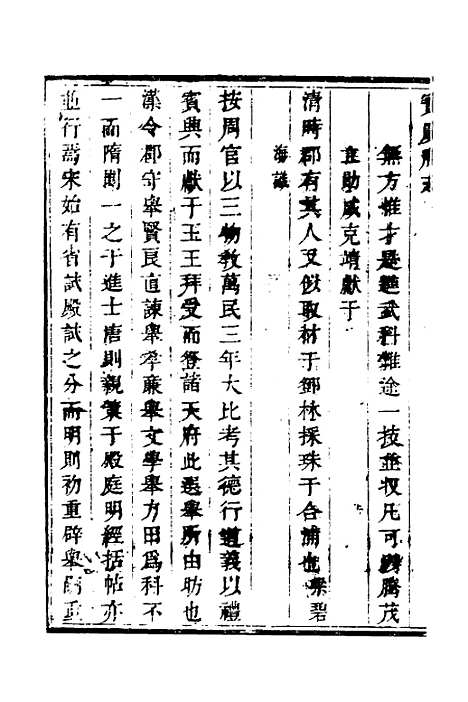 無方惟才是選武科雜途一技並収凡可騰茂
立助咸克靖獻于
清時郡有其人又似取材于鄧林採珠于合浦也
海議
按周官以三物敎萬民三年大比考其德行道義以禮
賔興而獻于王王拜受而登諸天府此選舉所由昉也
漢令郡守舉賢良直諫舉孝廉舉文學舉力田爲科不
一而隋則一之于進士唐則親策于殿庭明經括帖亦
並行焉宋始有省試殿試之分而明則初重辟舉